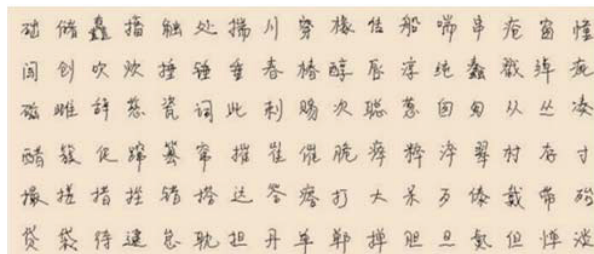 础 储 矗 搐 触 处 揣 川 穿 椽 传 船 喘 串 疮 窗 幢
闯 创 吹 炊 捶 锤 垂 春 椿 醇 唇 淳 纯 蠢 戳 绰 疵
磁 雌 辞 慈 瓷 词 此 刺 赐 次 聪 葱 囱 匆 从 丛 凑
醋 簇 促 蹿 篡 窜 摧 崔 催 脆 瘁 粹 淬 翠 村 存 寸
撮 搓 措 挫 错 搭 达 答 瘩 打 大 呆 歹 傣 戴 带 殆
贷 袋 待 逮 怠 耽 担 丹 单 郸 掸 胆 旦 氮 但 惮 淡